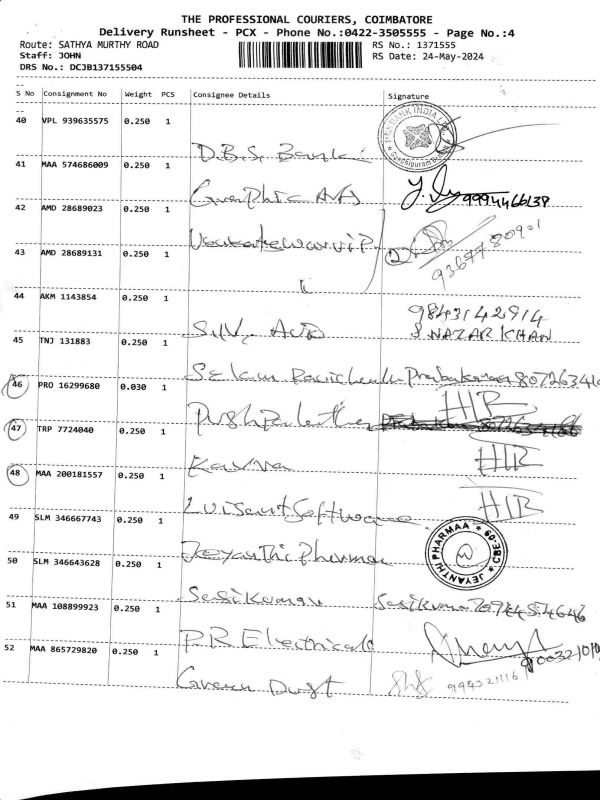 THE PROFESSIONAL COURIERS, COIMBATORE
Delivery Runsheet - PCX - Phone No.:0422-3505555 - Page No.:4
Route: SATHYA MURTHY ROAD RS No.: 1371555
Staff: JOHN RS Date: 24-May-2024
DRS No.: DCJB137155504
S No Consignment No Weight PCS Consignee Details Signature
40 VPL 939635575 0.250 1
D.B.S. Bank
41 MAA 574686009 0.250 1
Graphic Ads 9994466138
42 AMD 28689023 0.250 1
43 AMD 28689131 0.250 1
44 AKM 1143854 0.250 1
9843142914
S.I.V. Auto S NAZAR KHAN
45 TNJ 131883 0.250 1
Selam Prabakaran
46 PRO 16299680 0.030 1
HIR
47 TRP 7724040 0.250 1
Kavya HIR
48 MAA 200181557 0.250 1
Software HIR
49 SLM 346667743 0.250 1
Jeyanthi Pharmaa JEYANTHI PHARMAA CBE-09
50 SLM 346643628 0.250 1
Sasikumar Sasikumar
51 MAA 108899923 0.250 1
P.R Electricals
52 MAA 865729820 0.250 1
Green Dust